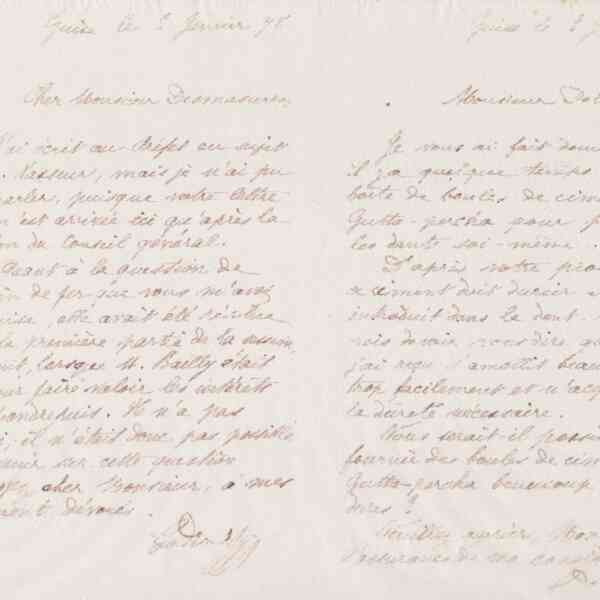 Guise le 2 Janvier 78
Cher Monsieur Desmasures,
J'ai écrit au Préfet au sujet
Vasseur, mais je n'ai pu
parler, puisque votre lettre
n'est arrivée ici qu'après la
on du Conseil général.
Quant à la question de
in de fer que vous m'avez
ise, elle avait été résolue
la première partie de la
lorsque M. Bailly était
ur faire valoir les intérêts
Il n'a pas
i, il n'était donc pas possible
enir sur cette question
cher Monsieur, à mes
ment dévoués.
Godin
Guise le
Monsieur
Je vous ai fait
il y a quelque temps
boîte de boules de cim
Gutta-percha pour
les dents soi-même.
D'après votre
ce ciment doit durcir
introduit dans la dent.
rois devoir vous dire qu
j'ai reçu s'amollit beau
trop facilement et n'acq
la dureté nécessaire.
Vous serait-il possi
fournir des boules de cim
Gutta-percha beaucoup
dures ?
Veuillez agréer,
l'assurance de ma consid